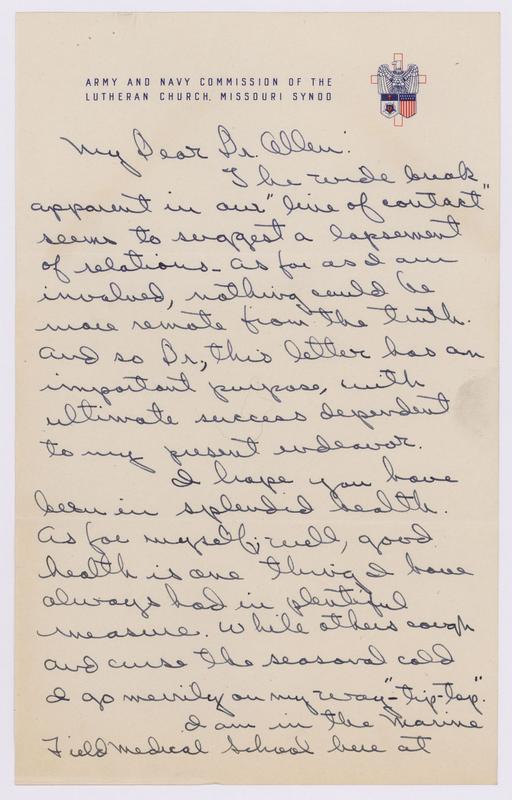 ARMY AND NAVY COMMISSION OF THE
LUTHERAN CHURCH, MISSOURI SYNOD
My Dear Dr. Allen:
The wide break
apparent in our "line of contact"
seems to suggest a lapsement
of relations - as far as I am
involved, nothing could be
more remote from the truth.
And so Dr., this letter has an
important purpose, with
ultimate success dependent
to my present endeavor.
I hope you have
been in splendid health.
As for myself; well, good
health is one thing I have
always had in plentiful
measure. While others cough
and curse the seasonal cold
I go merrily on my way "tip-top".
I am in the Marine
Field Medical School here at